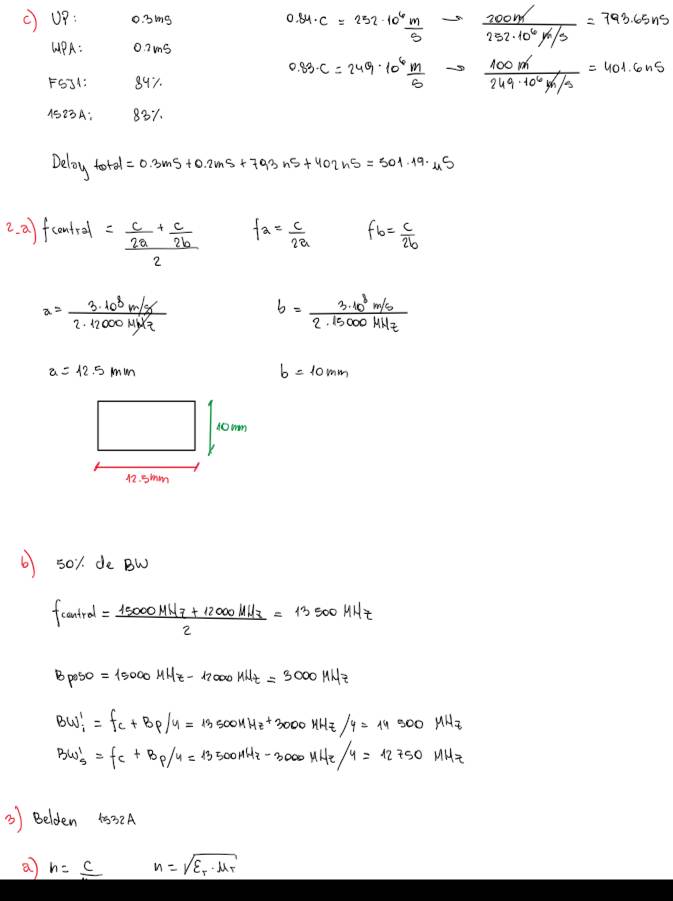 c) UP: 0.3ms 0.84·c = 252·10⁶ m/s → 200m / 252·10⁶ m/s = 793.65ns
WPA: 0.2ms
0.83·c = 249·10⁶ m/s → 100 m / 249·10⁶ m/s = 401.6ns
FSJ1: 84%
1523A: 83%
Delay total = 0.3ms + 0.2ms + 793 ns + 402 ns = 501.19·μs
2-a) fcentral = (c/2a + c/2b) / 2 fa = c/2a fb = c/2b
a = 3·10⁸ m/s / 2·12000 MHz b = 3·10⁸ m/s / 2·15000 MHz
a = 12.5 mm b = 10mm
10mm
12.5mm
b) 50% de BW
fcentral = 15000 MHz + 12000 MHz / 2 = 13 500 MHz
Bpaso = 15000 MHz - 12000 MHz = 3000 MHz
BW'i = fc + Bp/4 = 13 500MHz + 3000 MHz/4 = 14 500 MHz
BW's = fc + Bp/4 = 13 500MHz - 3000 MHz/4 = 12 750 MHz
3) Belden 1532A
a) n = c n = √εr·μr